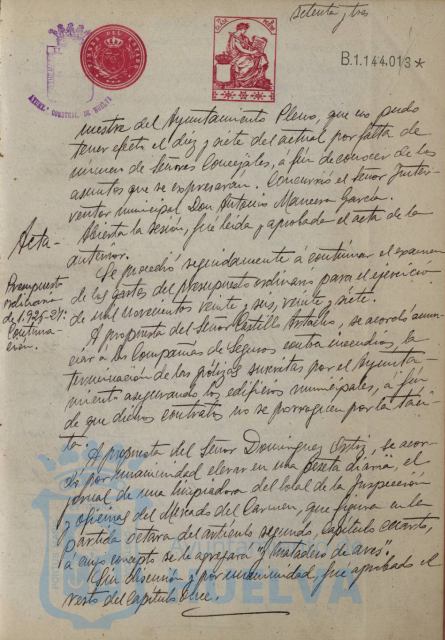 Setenta y tres
B.1.144.013*
AYUNT.º CONSTNAL. DE HUELVA
mestre del Ayuntamiento Pleno, que no pudo
tener efecto el diez y siete del actual por falta de
número de Señores Concejales, á fin de conocer de los
asuntos que se expresaran. Concurrió el señor Inter-
ventor municipal Don Antonio Mancera García.
Abierta la sesión, fué leida y aprobada el acta de la
anterior.
Acta-
Se procedió seguidamente á continuar el examen
de los gastos del presupuesto ordinario para el ejercicio
de mil novecientos veinte y seis, veinte y siete.
Presupuesto
ordinario
de 1.926-27:
Continua-
ción.
A propuesta del Señor Castillo, se acordó anun-
ciar á las Compañías de Seguros contra incendios, la
terminación de las polizas suscritas por el Ayunta-
miento asegurando los edificios municipales, á fin
de que dichos contratos no se prorroguen por la táci-
ta.
A propuesta del Señor Dominguez Ortiz, se acor-
dó por unanimidad elevar en una peseta diaria, el
jornal de una limpiadora del local de la Inspección
y oficinas del Mercado del Carmen, que figura en la
partida octava del artículo segundo, capítulo cuarto,
á cuyo concepto se le agregará "y matadero de aves".
Sin discusión y por unanimidad, fué aprobado el
resto del capítulo once.
HUELVA